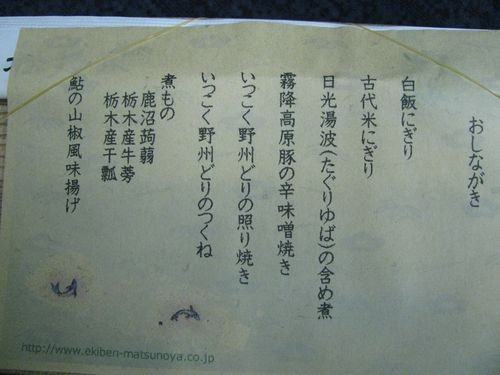 おしながき
白飯にぎり
古代米にぎり
日光湯波(たぐりゆば)の含め煮
霧降高原豚の辛味噌焼き
いっこく野州どりの照り焼き
いっこく野州どりのつくね
煮もの
鹿沼蒟蒻
栃木産牛蒡
栃木産干瓢
鮎の山椒風味揚げ
http://www.ekiben-matsunoya.co.jp